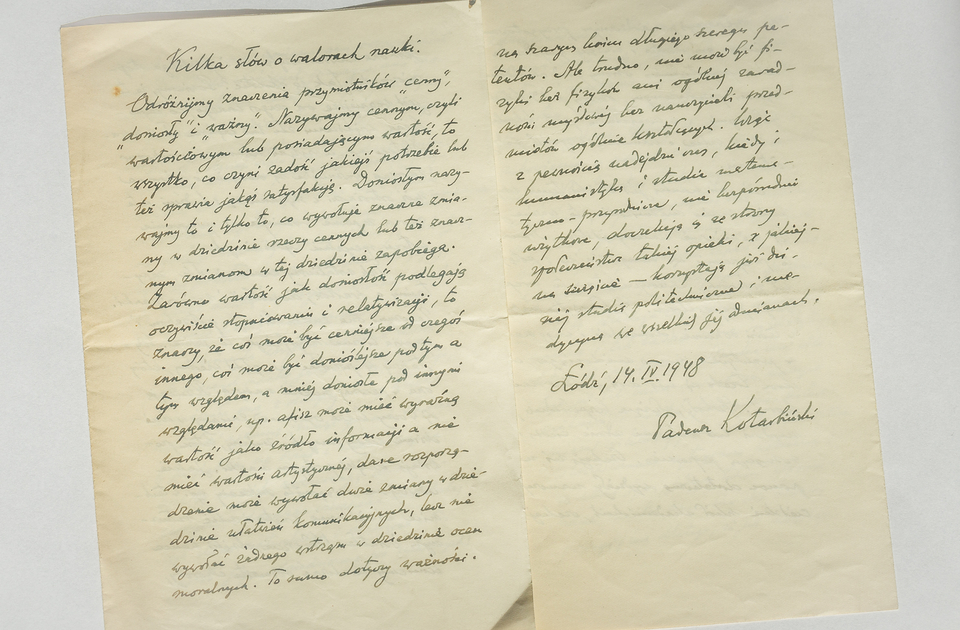 Kilka słów o walorach nauki.
Odróżnijmy znaczenia przymiotników „cenny",
„doniosły" i „ważny". Nazywajmy cennym, czyli
wartościowym lub posiadającym wartość, to
wszystko, co czyni zadość jakiejś potrzebie lub
też sprawia jakąś satysfakcję. Doniosłym nazy-
wajmy to i tylko to, co wywołuje znaczne zmia-
ny w dziedzinie rzeczy cennych lub też znacz-
nym zmianom w tej dziedzinie zapobiega.
Zarówno wartość jak doniosłość podlegają
oczywiście stopniowaniu i relatywizacji, to
znaczy, że coś może być cenniejsze od czegoś
innego, coś może być donioślejsze pod tym a
tym względem, a mniej doniosłe pod innymi
względami, np. afisz może mieć wyraźną
wartość jako źródło informacji a nie
mieć wartości artystycznej, dane rozporzą-
dzenie może wywołać duże zmiany w dzie-
dzinie ułatwień komunikacyjnych, lecz nie
wywołać żadnego wstrząsu w dziedzinie ocen
moralnych. To samo dotyczy ważności.
na szarym końcu długiego szeregu pe-
tentów. Ale trudno, nie może być fi-
zyki bez fizyków ani ogólnej zarad-
ności myślowej bez nauczycieli przed-
miotów ogólnie kształcących. Więc
z pewnością nadejdzie czas, kiedy i
humanistyka i studia matema-
tyczno-przyrodnicze, nie bezpośrednio
użytkowe, doczekają się ze strony
społeczeństwa takiej opieki, z jakiej —
na szczęście — korzystają już dzi-
siaj studia politechniczne i me-
dycyna we wszelkiej jej odmianach.
Łódź, 14. IV. 1948
Tadeusz Kotarbiński